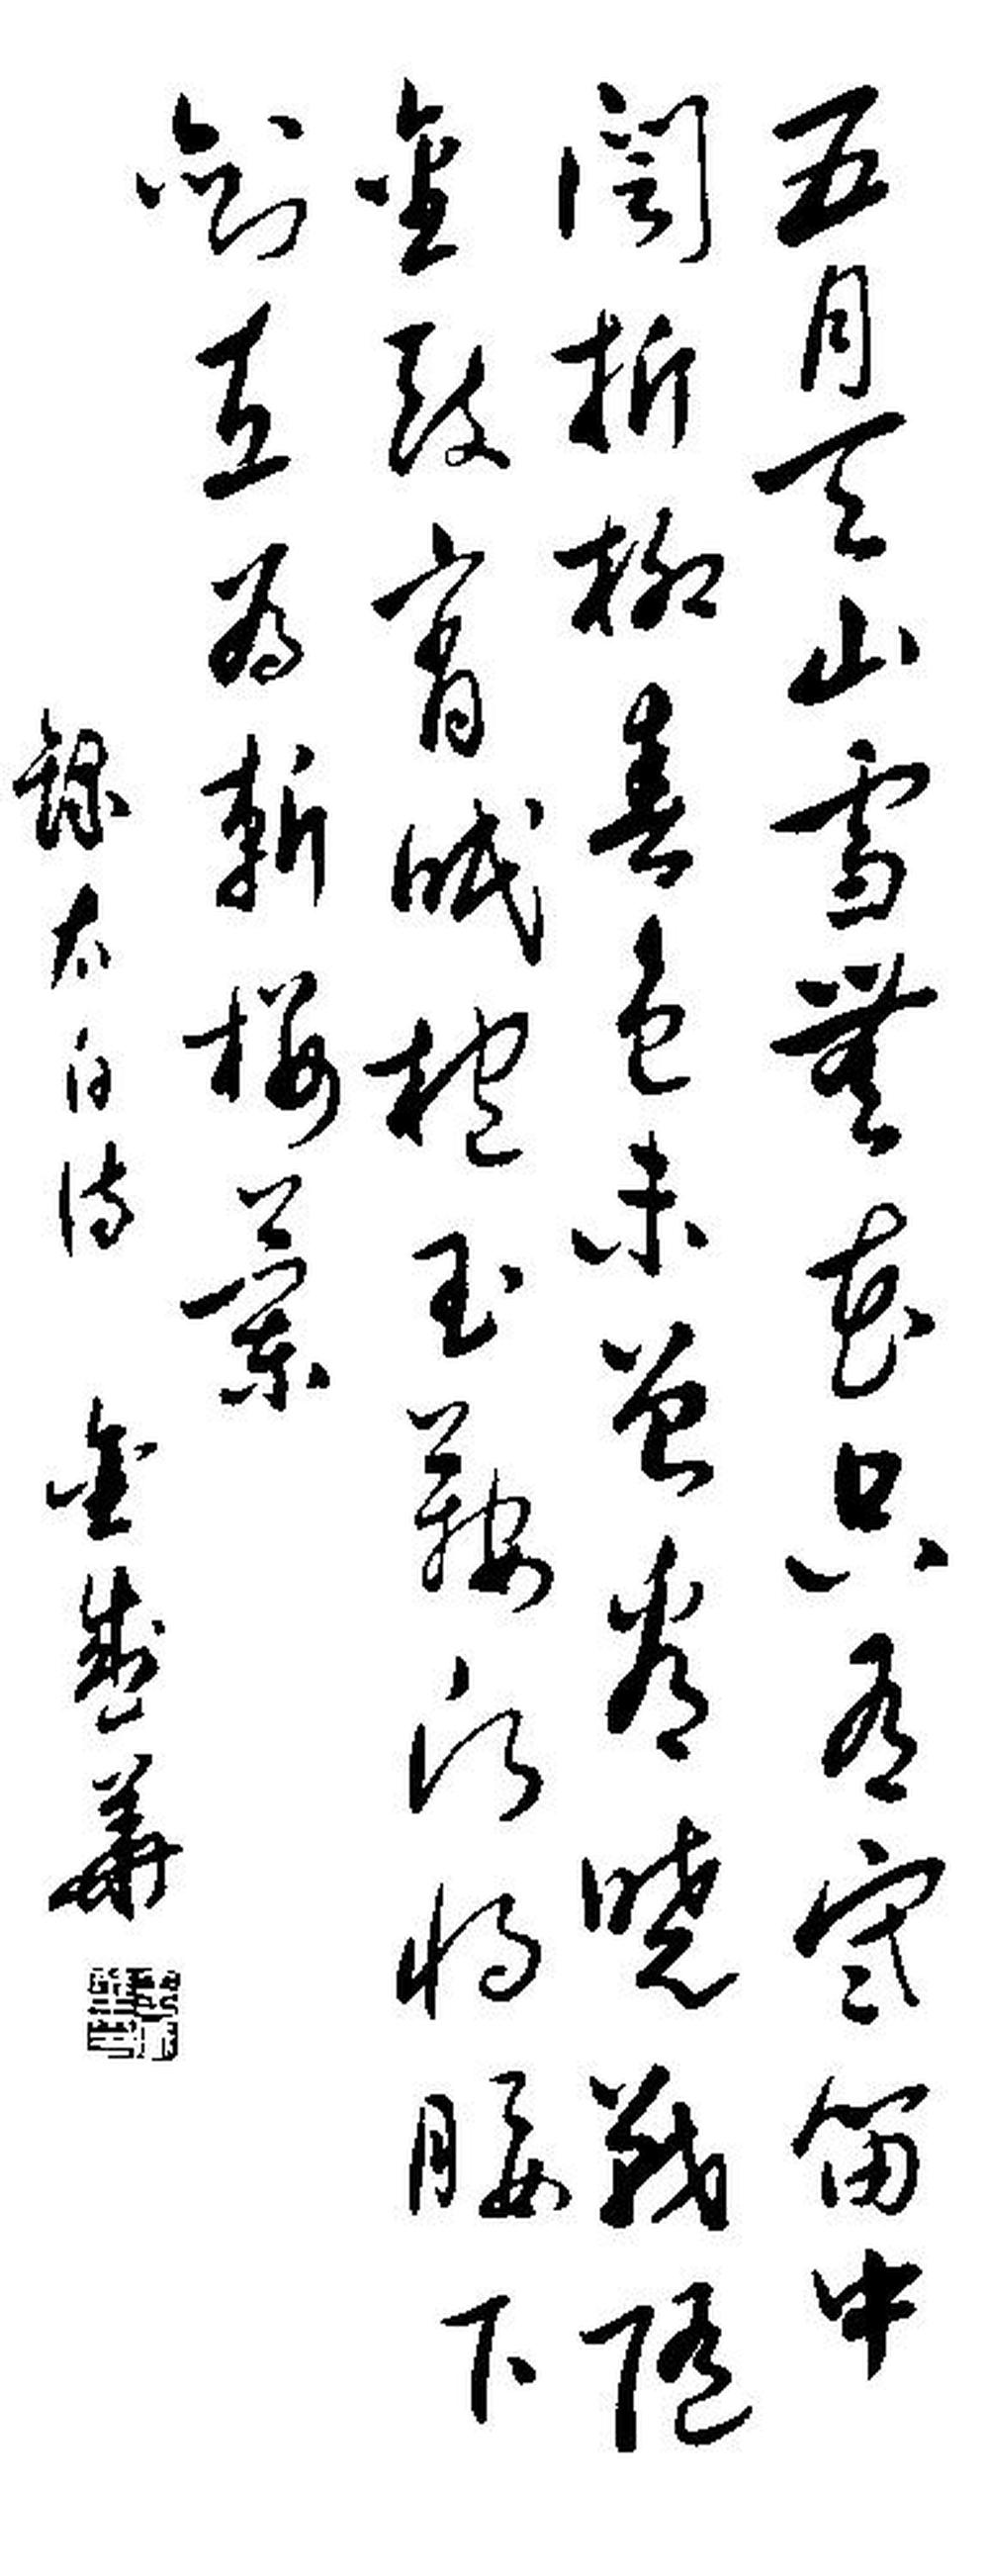 五月天山雪無花只有寒笛中
聞折柳春色未曾看曉戰隨
金鼓宵眠抱玉鞍願將腰下
劍直為斬樓蘭
錄太白詩 金 華